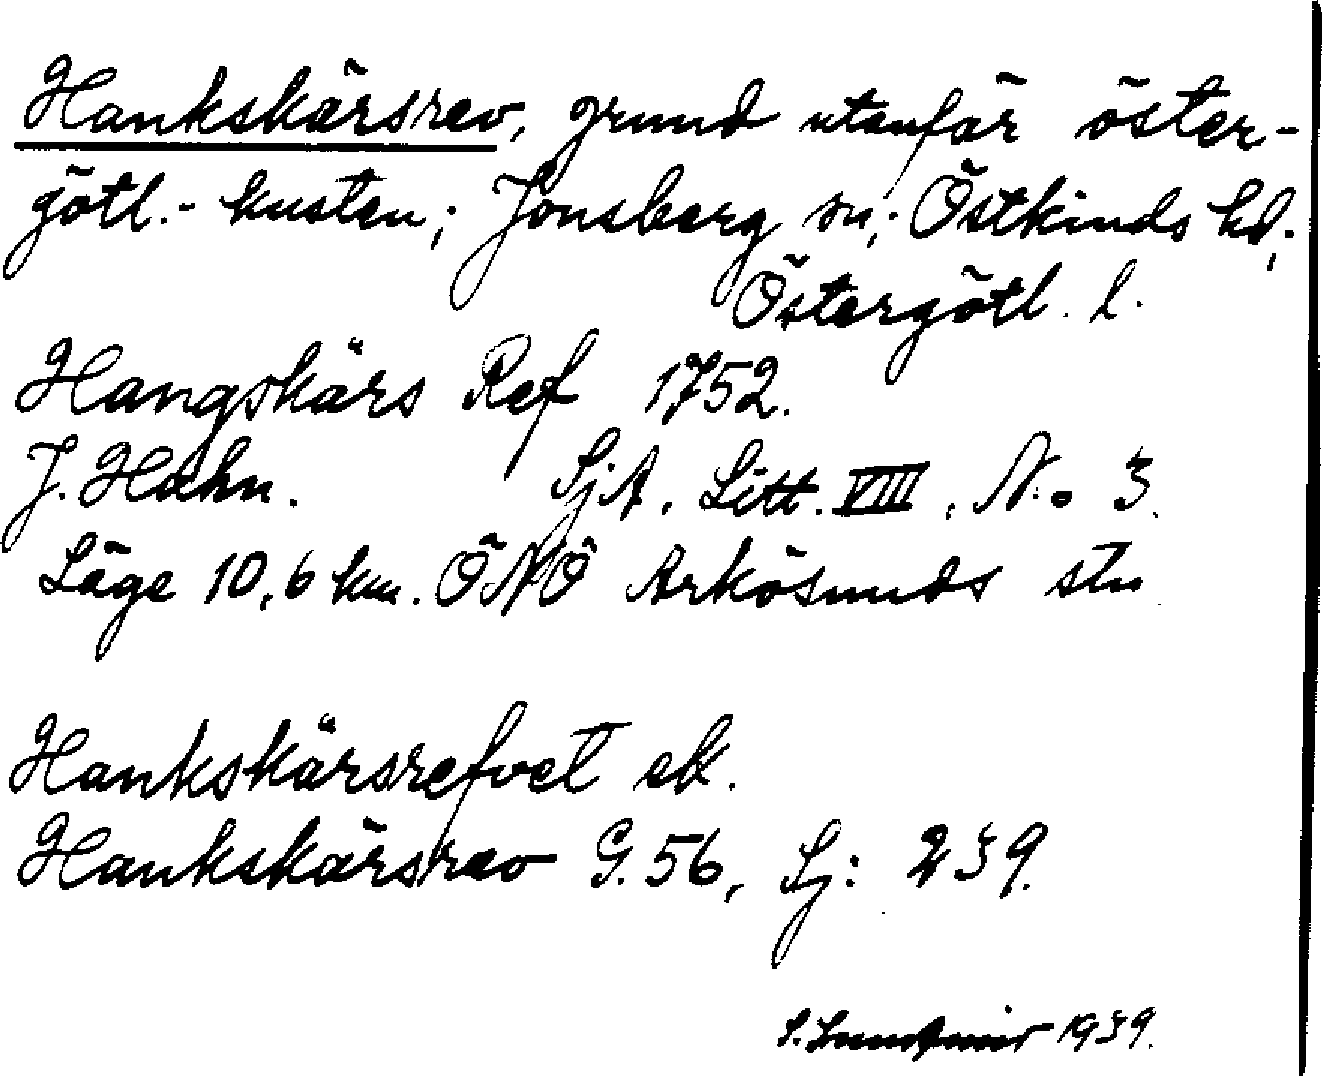 Hankskärsrev, grund utanför öster-
götl.-kusten; Jonsberg sn; Östkinds hd;
Östergötl. l.
Hangskärs Ref 1752.
J. Hahn. SjA. Litt. VIII. No 3.
Läge 10,6 km. ÖNÖ Arkösunds stn
Hankskärsrefvet ek.
Hankskärsrev G. 56, Sj: 239.
S. 1939.